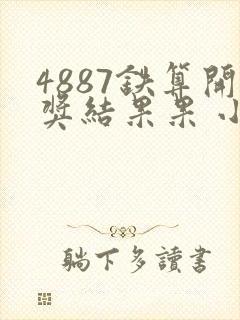 4887鉄算開
奖結果果小
躺下多讀書